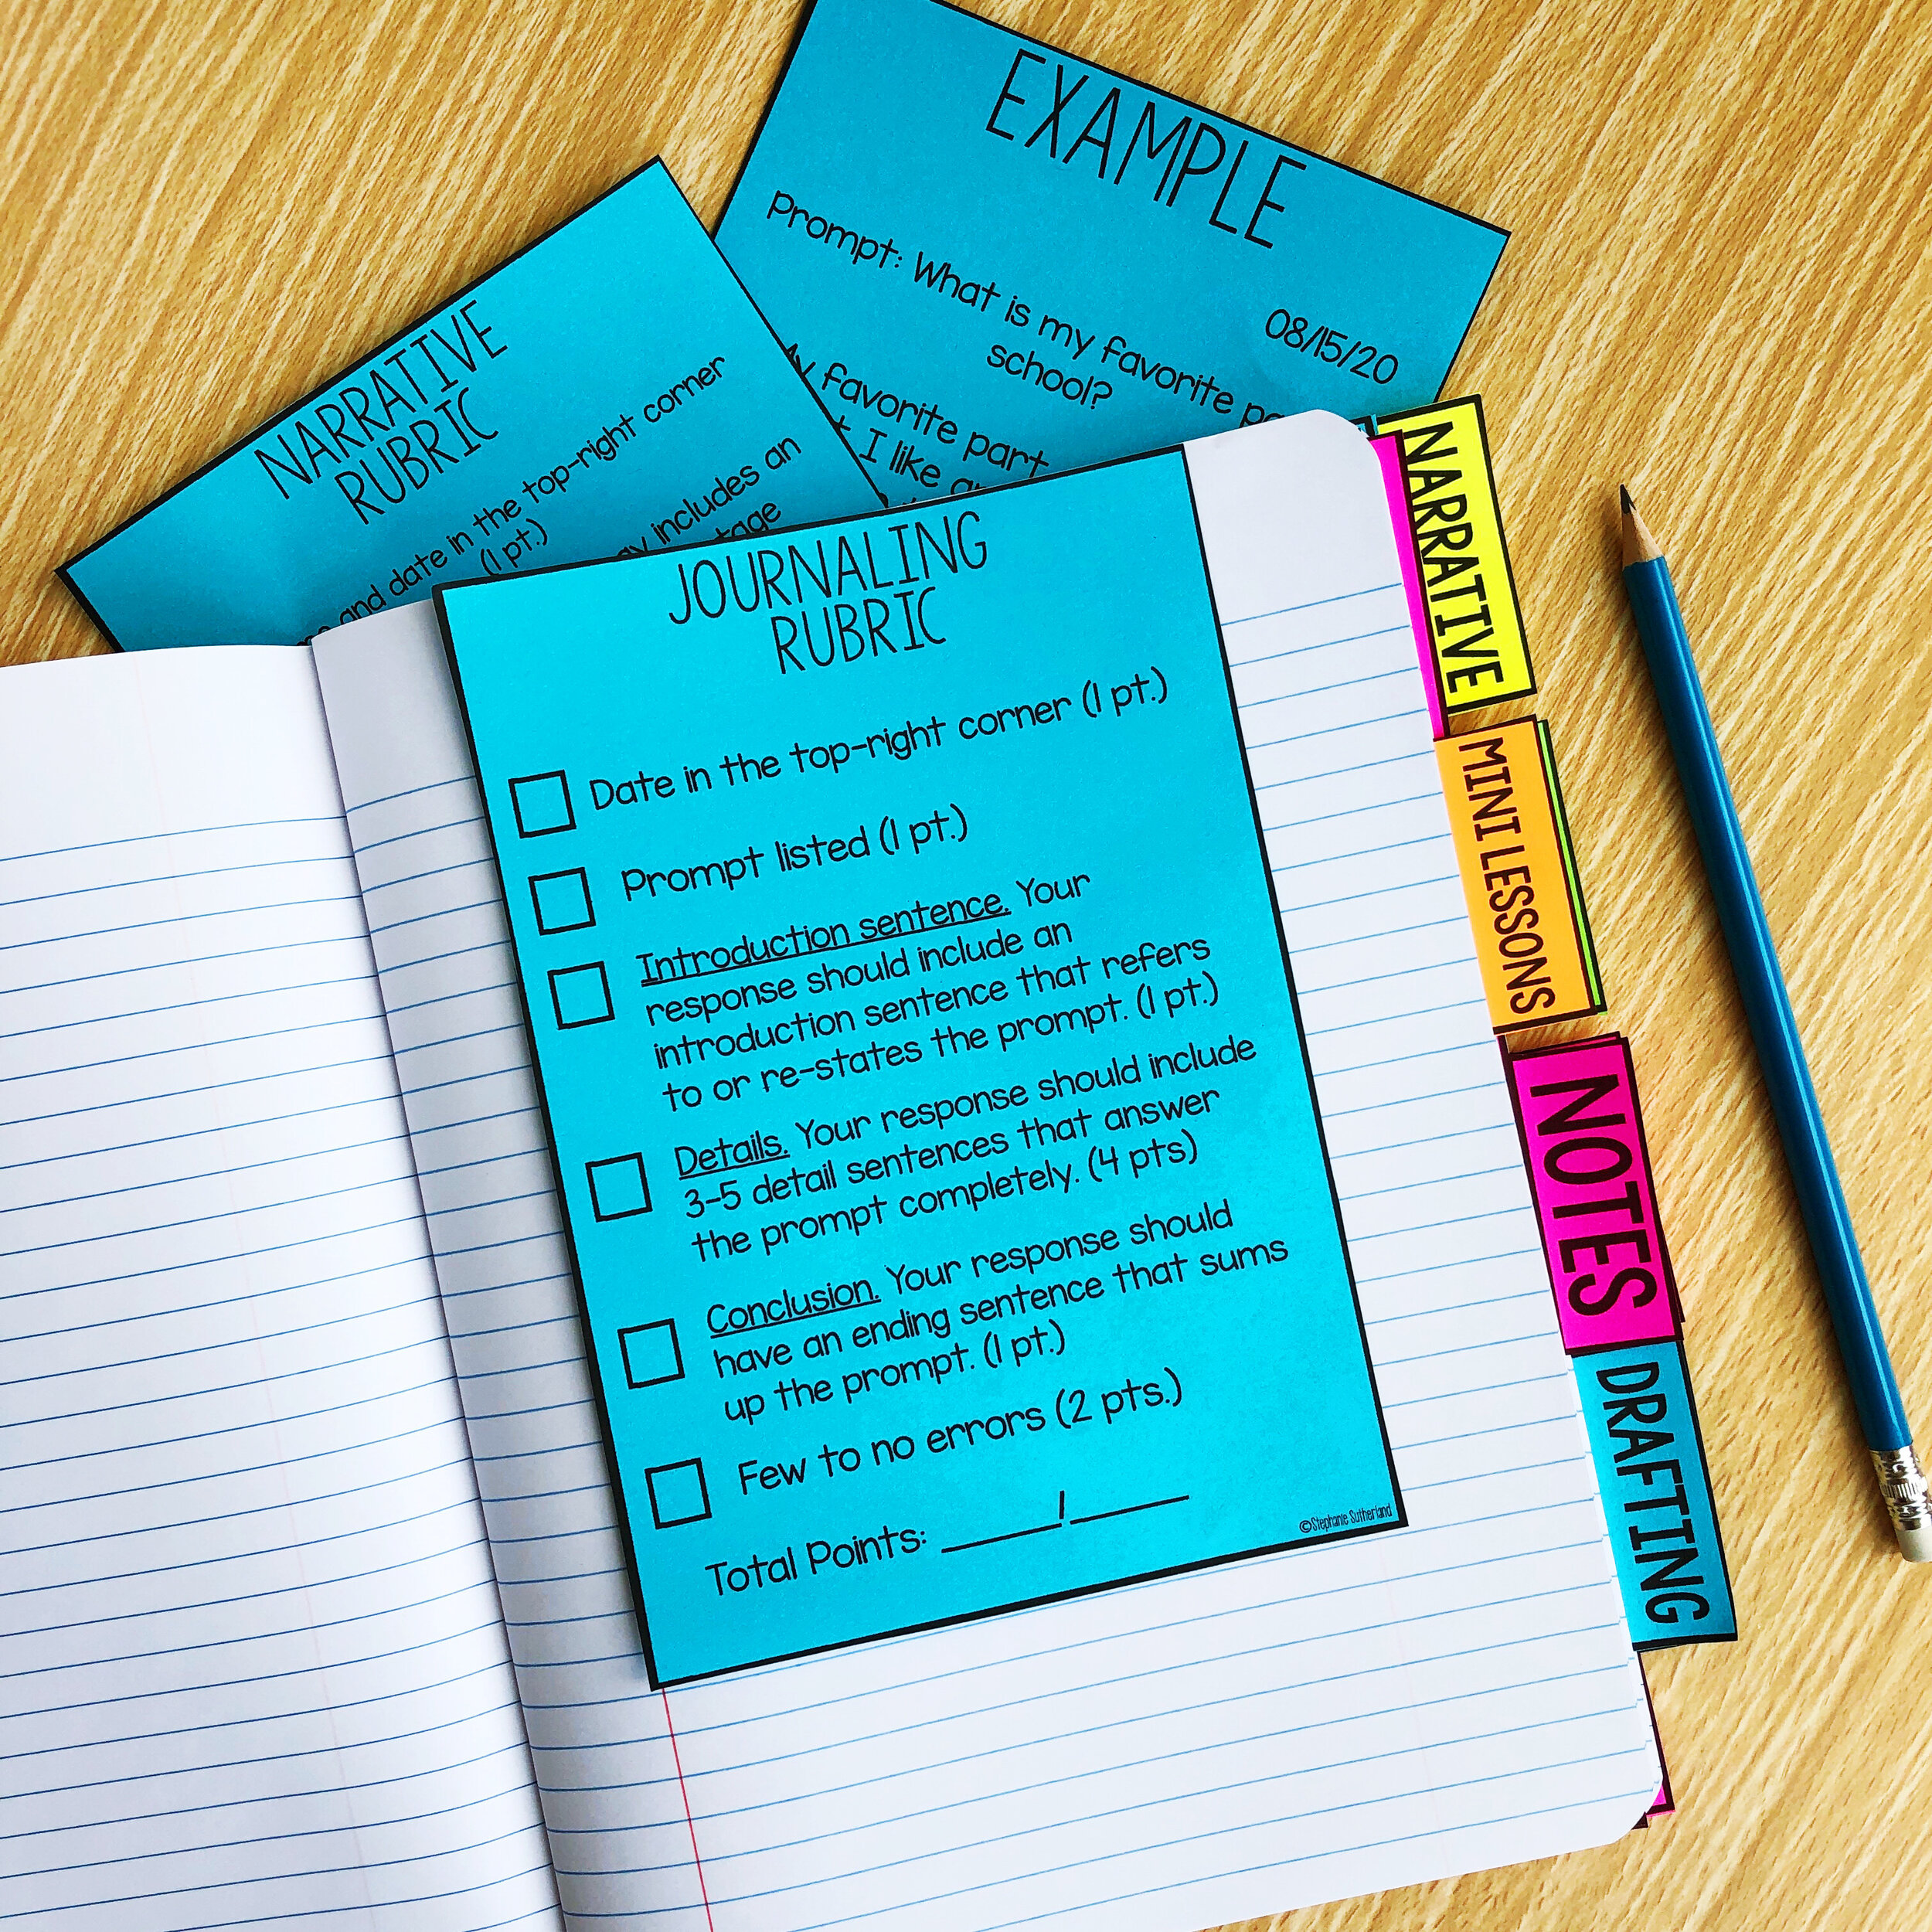 EXAMPLE
08/15/20
Prompt: What is my favorite
school?
favorite part
I like
NARRATIVE
RUBRIC
and date in the top-right corner
(1 pt.)
includes an
JOURNALING
RUBRIC
Date in the top-right corner (1 pt.)
Prompt listed (1 pt.)
Introduction sentence. Your
response should include an
introduction sentence that refers
to or re-states the prompt. (1 pt.)
Details. Your response should include
3-5 detail sentences that answer
the prompt completely. (4 pts)
Conclusion. Your response should
have an ending sentence that sums
up the prompt. (1 pt.)
Few to no errors (2 pts.)
Total Points: _____/_____
©Stephanie Sutherland
NARRATIVE
MINI LESSONS
NOTES
DRAFTING